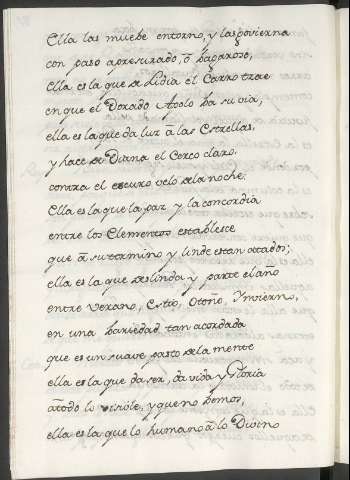 Ella las muebe entorno, y las govierna
con paso apresurado, ō bagaroso,
Ella es la que de Lidia el Carro trae
en que el Dorado Apolo ba su via,
ella es la que da luz à las Estrellas,
y hace de Diana el Cerco claro,
contra el escuro velo de la noche:
Ella es la que la paz y la concordia
entre los Elementos establece
que ā su termino y linde estan atados;
ella es la que deslinda y parte el año
entre Verano, Estio, Otoño, Invierno,
en una bariedad tan acordada
que es un suave pasto de la mente
ella es la que da ser, da vida y Gloria
a todo lo visible, y que no bemos,
ella es la que lo humano à lo Divino